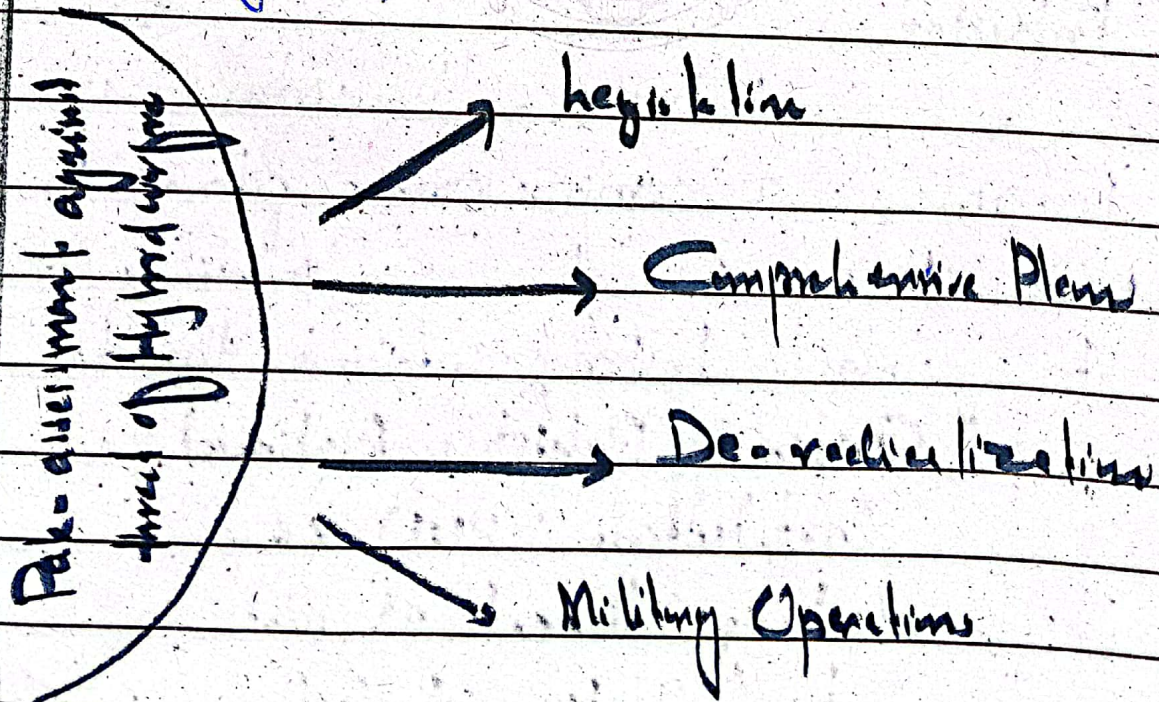 Pak-assessment against
threat of Hybrid warfare
Legislation
Comprehensive Plan
De-radicalization
Military Operations